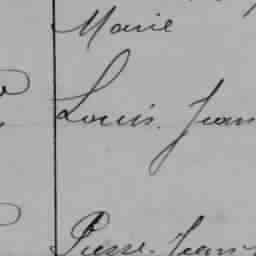 Marie
Louis. Jean
Pierre. Jean-